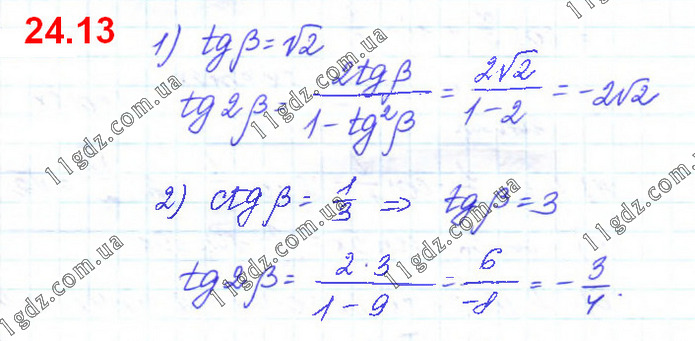 24.13
1) tg β = √2
tg 2β = 2tg β / (1 - tg²β) = 2√2 / (1 - 2) = -2√2
2) ctg β = 1/3 ⇒ tg β = 3
tg 2β = 2·3 / (1 - 9) = 6 / -8 = -3/4.
11gdz.com.ua
11gdz.com.ua
11gdz.com.ua
11gdz.com.ua
11gdz.com.ua
11gdz.com.ua
11gdz.com.ua
11gdz.com.ua